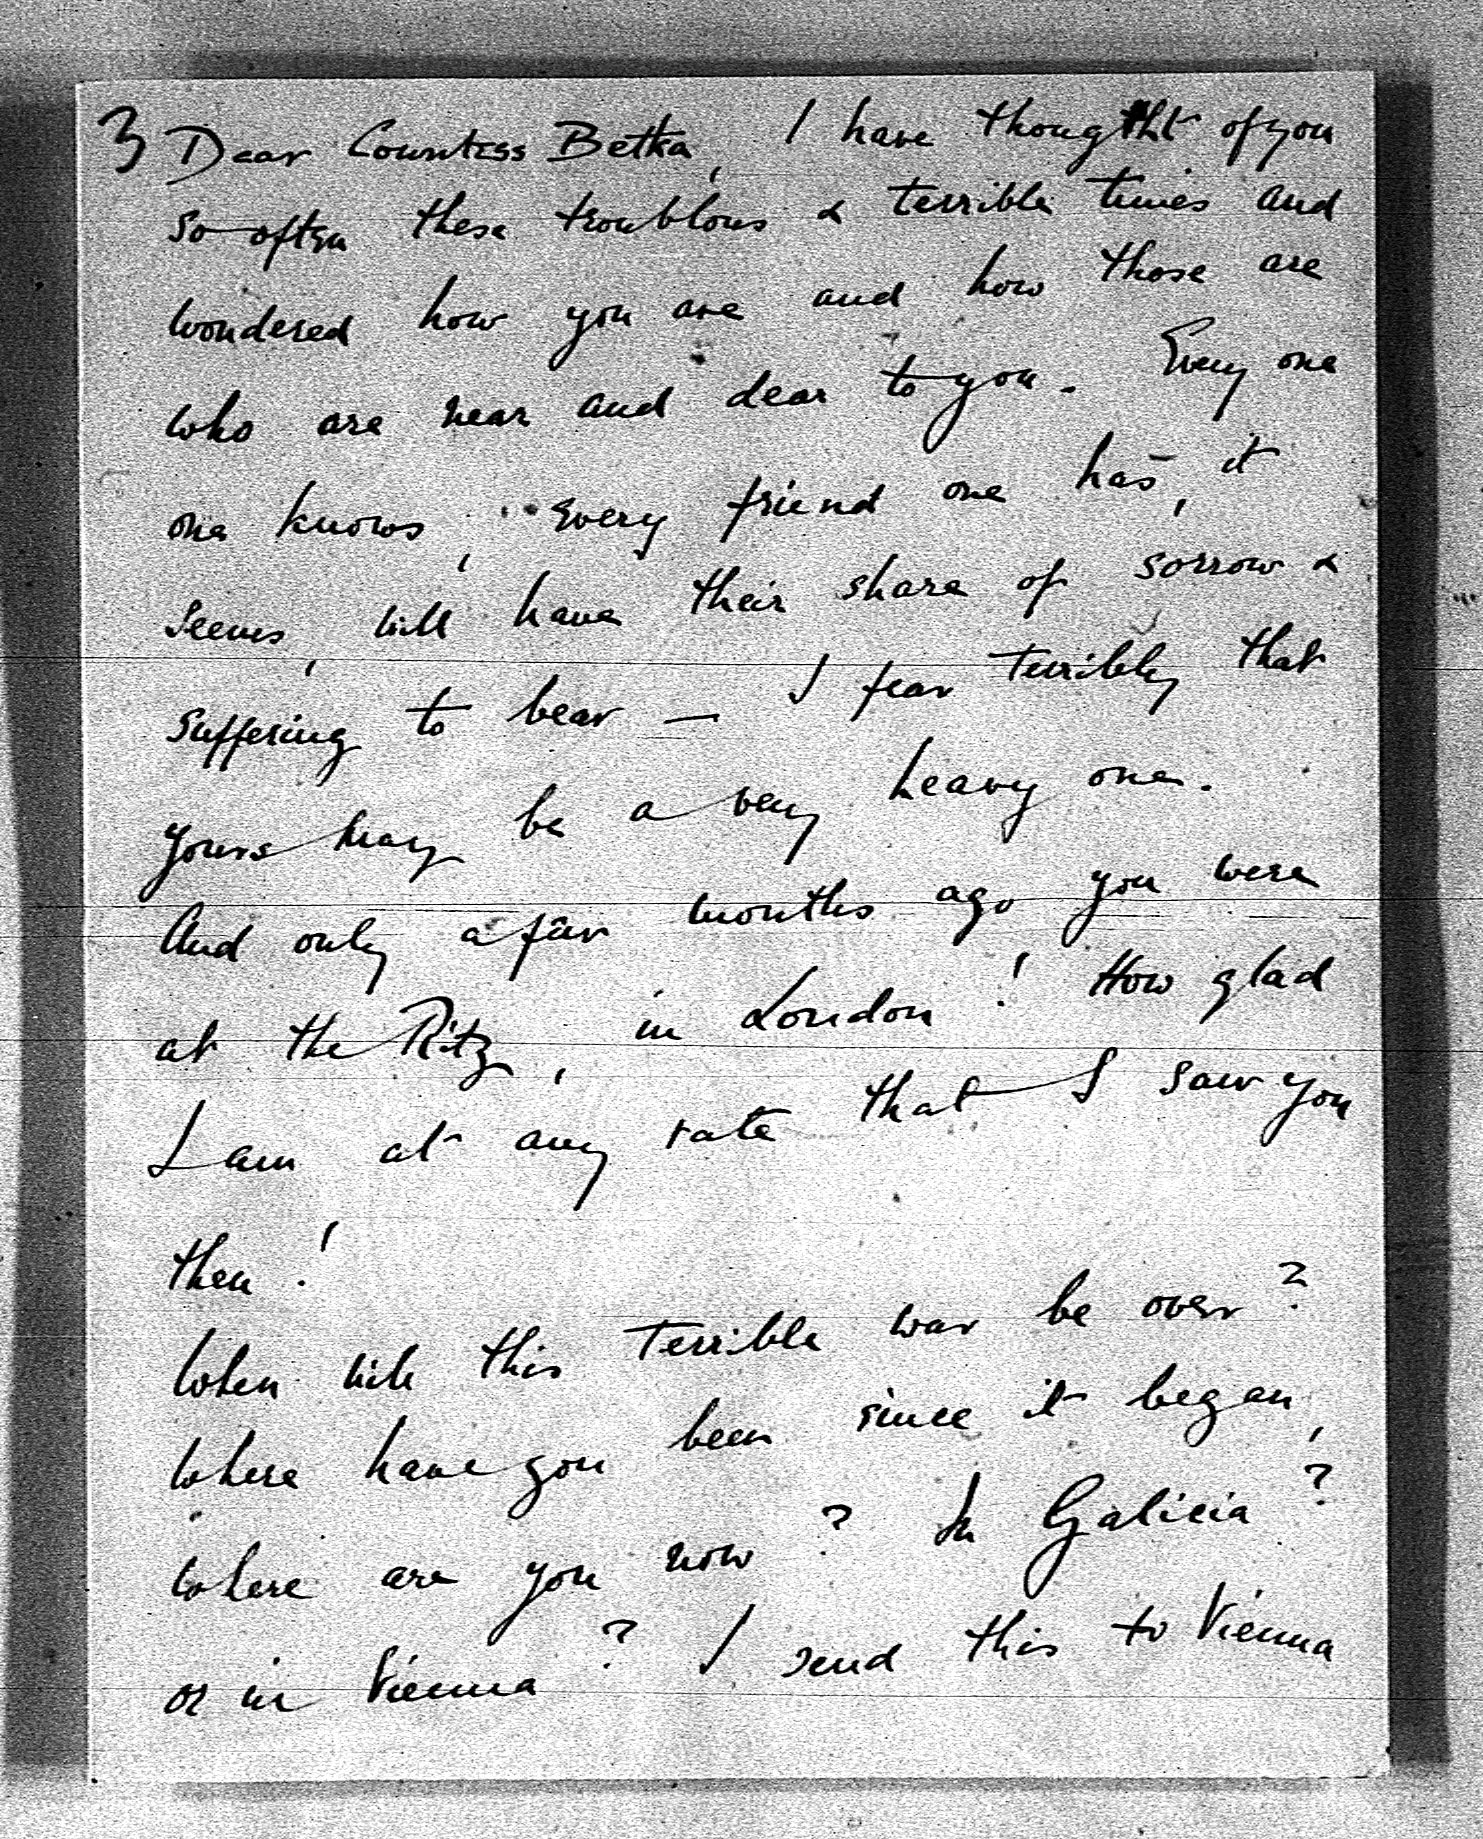 3 Dear Countess Betka, I have thought of you
so often these troublous & terrible times and
wondered how you are and how those are
who are near and dear to you. Every one
one knows, every friend one has, it
seems, will have their share of sorrow &
suffering to bear — I fear terribly that
yours may be a very heavy one.
And only a few months ago you were
at the Ritz, in London! How glad
I am at any rate that I saw you
then!
When will this terrible war be over?
Where have you been since it began,
where are you now? In Galicia?
or in Vienna? I send this to Vienna